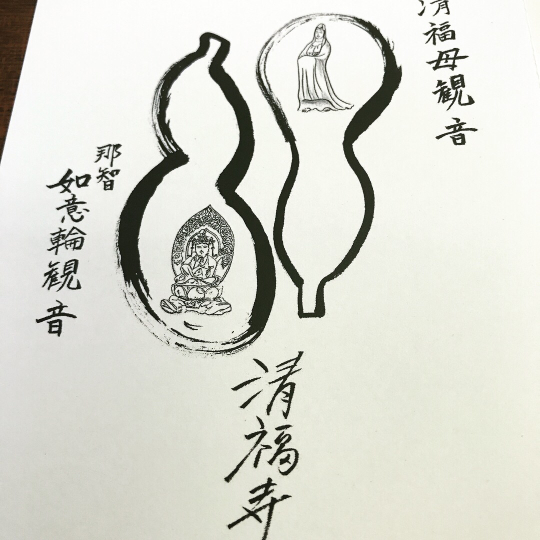 清福母観音
那智
如意輪観音
清福寺